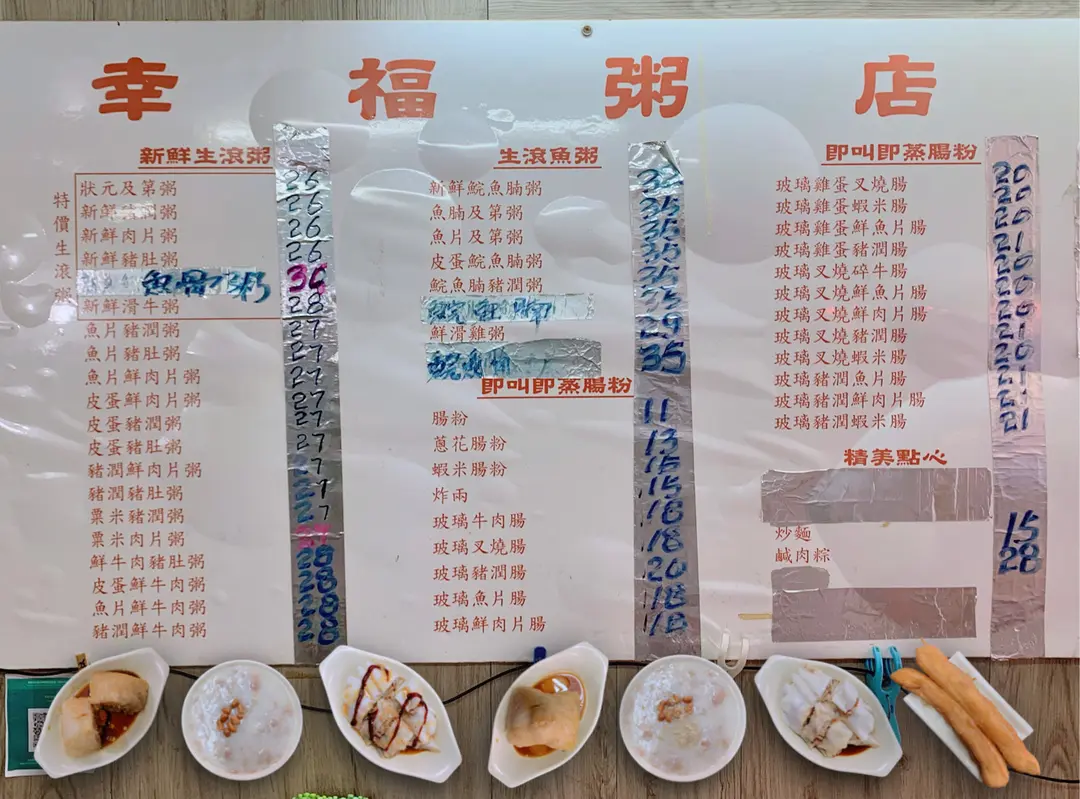 幸福粥店
新鮮生滾粥
特價生滾粥
狀元及第粥 26
新鮮豬潤粥 26
新鮮肉片粥 26
新鮮豬肚粥 26
魚骨粥
新鮮滑牛粥 28
魚片豬潤粥 27
魚片豬肚粥 27
魚片鮮肉片粥 27
皮蛋鮮肉片粥 27
皮蛋豬潤粥 27
皮蛋豬肚粥 27
豬潤鮮肉片粥
豬潤豬肚粥
粟米豬潤粥 27
粟米肉片粥
鮮牛肉豬肚粥 28
皮蛋鮮牛肉粥 28
魚片鮮牛肉粥 28
豬潤鮮牛肉粥 28
生滾魚粥
新鮮鯇魚腩粥
魚腩及第粥 35
魚片及第粥 35
皮蛋鯇魚腩粥 35
鯇魚腩豬潤粥 35
鮮滑雞粥 29
35
即叫即蒸腸粉
腸粉 11
蔥花腸粉 13
蝦米腸粉 15
炸兩 15
玻璃牛肉腸 18
玻璃叉燒腸 18
玻璃豬潤腸 20
玻璃魚片腸 18
玻璃鮮肉片腸 18
即叫即蒸腸粉
玻璃雞蛋叉燒腸 20
玻璃雞蛋蝦米腸 20
玻璃雞蛋鮮魚片腸 21
玻璃雞蛋豬潤腸 20
玻璃叉燒碎牛腸 20
玻璃叉燒鮮魚片腸 20
玻璃叉燒鮮肉片腸 20
玻璃叉燒豬潤腸 21
玻璃叉燒蝦米腸 20
玻璃豬潤魚片腸 21
玻璃豬潤鮮肉片腸 21
玻璃豬潤蝦米腸 21
精美點心
炒麵 15
鹹肉粽 28